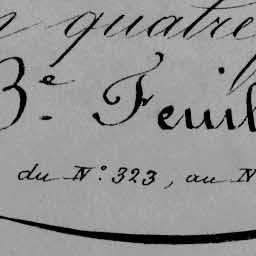 quatre
3e. Feuil
du N° 323, au N